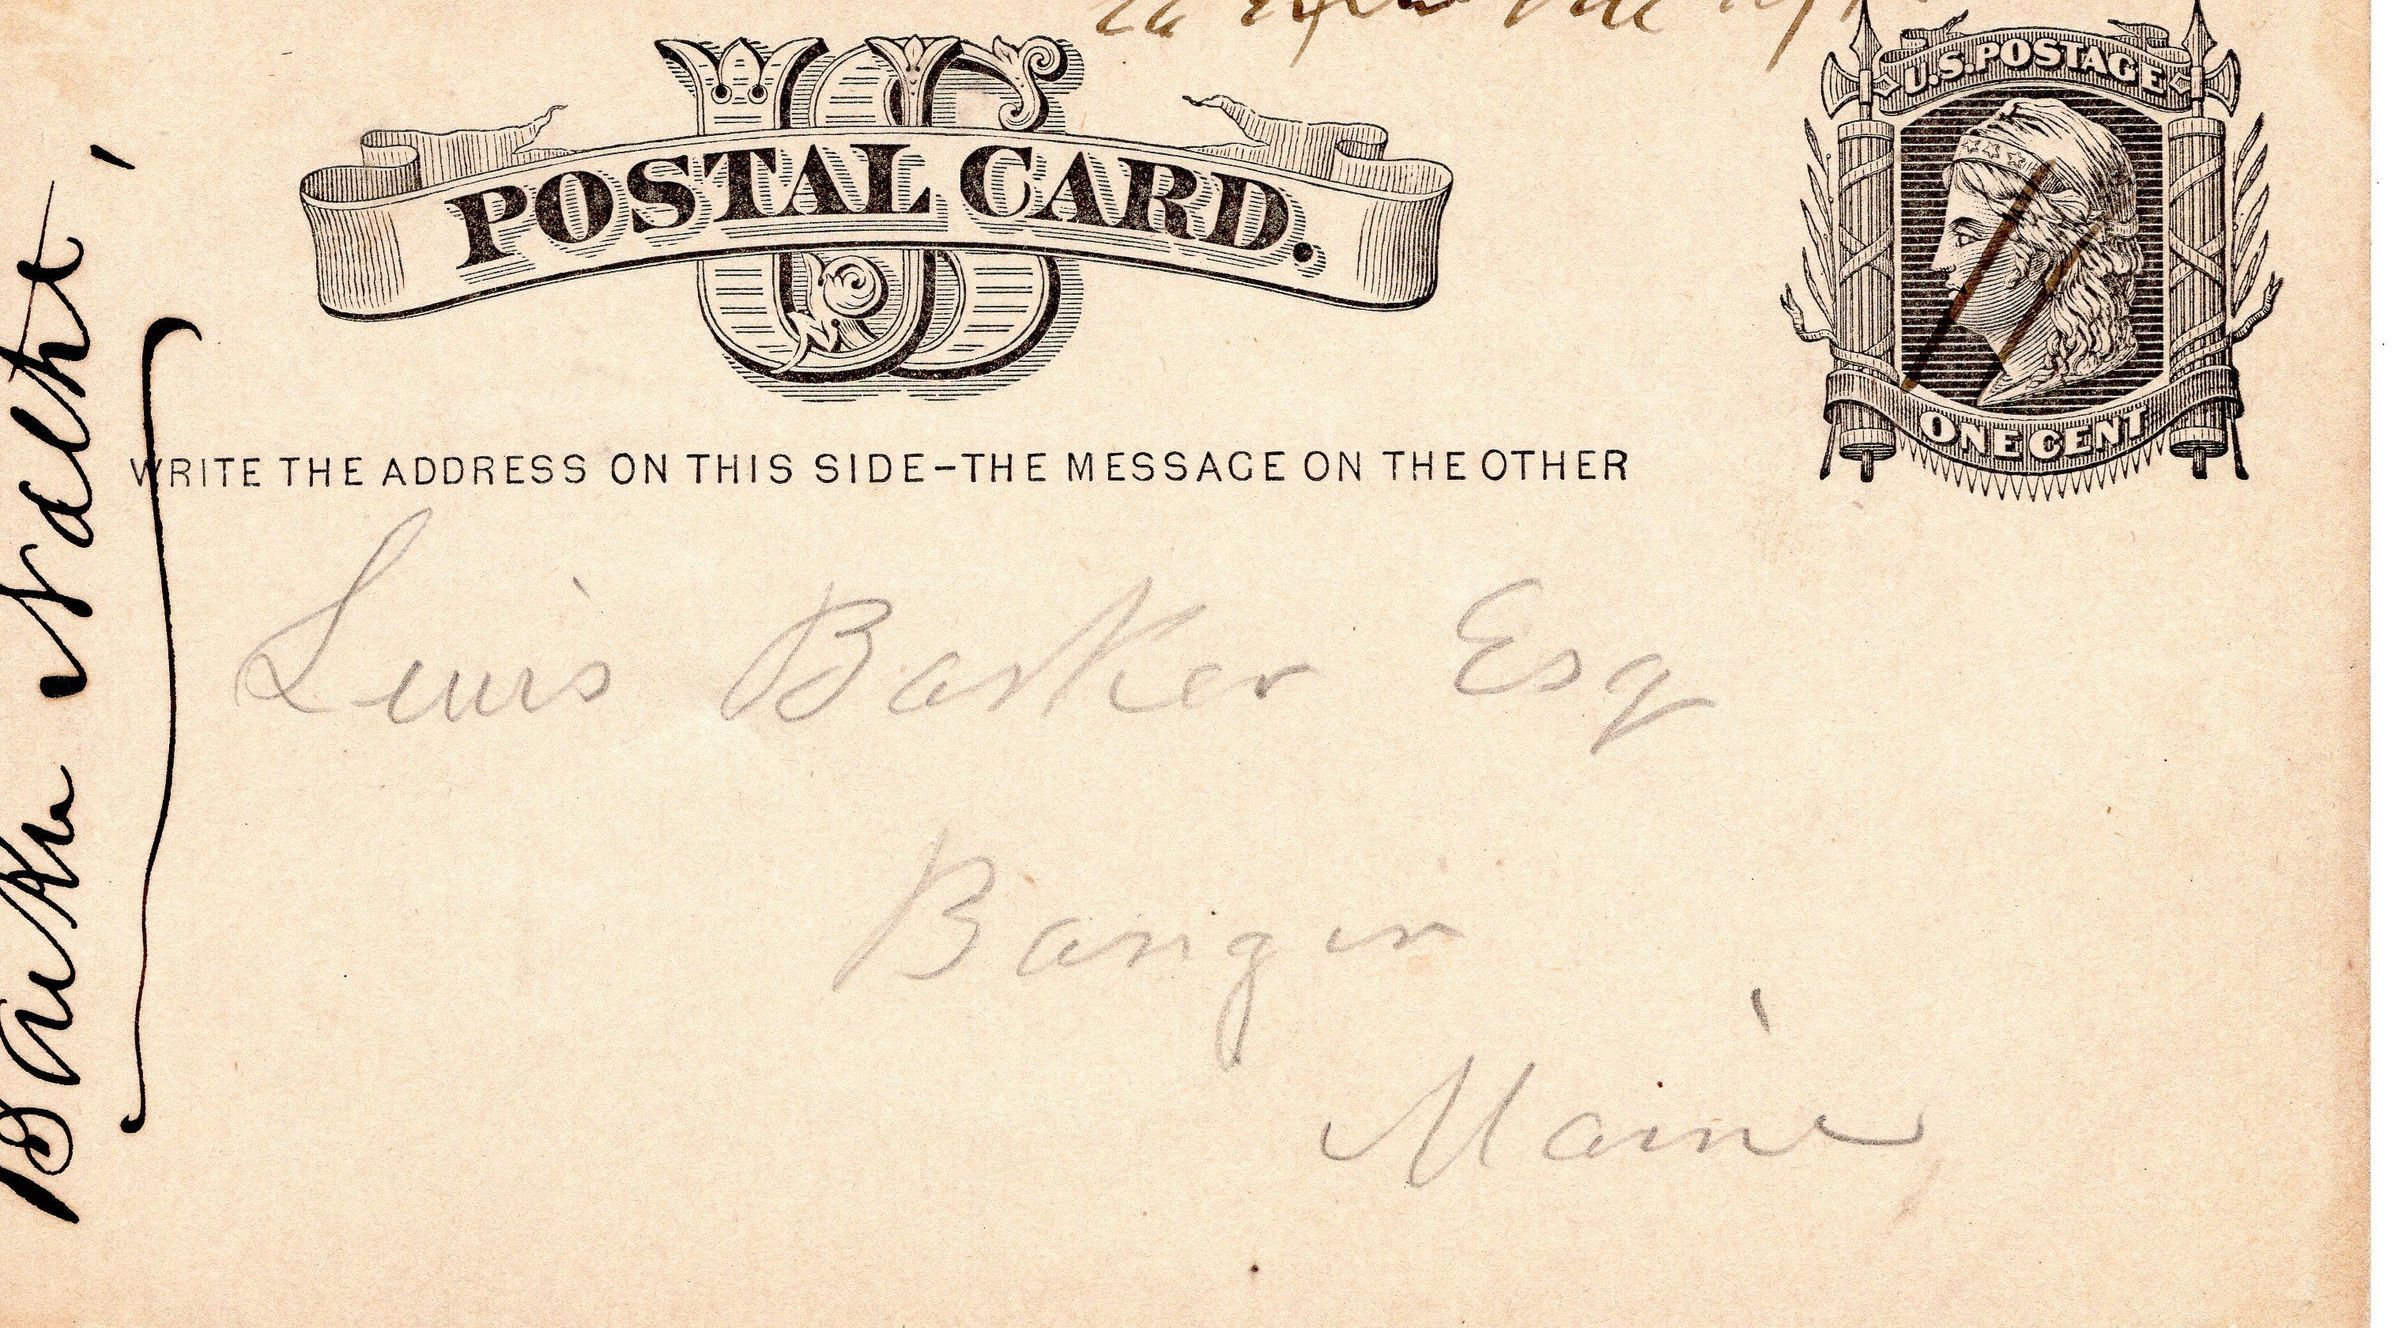 US
POSTAL CARD.
U.S. POSTAGE
ONE CENT
WRITE THE ADDRESS ON THIS SIDE-THE MESSAGE ON THE OTHER
Lewis Barker Esq
Bangor
Maine,
Barker